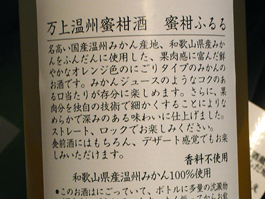 万上温州蜜柑酒 蜜柑ふるる
名高い国産温州みかん産地、和歌山県産みか
んをふんだんに使用した、果肉感に富んだ鮮
やかなオレンジ色のにごりタイプのみかん
のお酒です。みかんジュースのようなコクのあ
る口当たりが存分に楽しめます。さらに、果
肉分を独自の技術で細かくすることによりな
めらかで深みのある味わいに仕上げました。
ストレート、ロックでお楽しみください。
食前酒にはもちろん、デザート感覚でもお楽
しみいただけます。
香料不使用
和歌山県産温州みかん100%使用
●このお酒はにごっていて、ボトルに多量の沈澱物